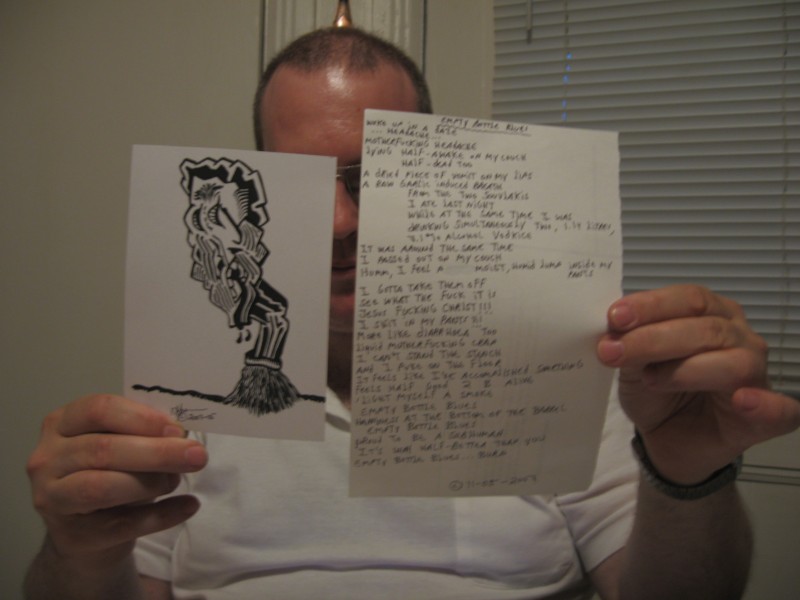 EMPTY BOTTLE BLUES
WOKE UP IN A DAZE
... HEADACHE...
MOTHERFUCKING HEADACHE
LYING HALF-AWAKE ON MY COUCH
HALF-DEAD TOO
A DRIED PIECE OF VOMIT ON MY LIPS
A RAW GARLIC INDUCED BREATH
FROM THE TWO SOUVLAKIS
I ATE LAST NIGHT
WHILE AT THE SAME TIME I WAS
DRINKING SIMULTANEOUSLY TWO, 1.18 LITERS,
% ALCOHOL
IT WAS AROUND THE SAME TIME
I PASSED OUT ON MY COUCH
HUMM, I FEEL A MOIST, HUMID LUMP INSIDE MY
PANTS
I GOTTA TAKE THEM OFF
SEE WHAT THE FUCK IT IS
JESUS FUCKING CHRIST!!!
I SHIT IN MY PANTS!!!
MORE LIKE DIARRHOEA TOO
LIQUID MOTHERFUCKING CRAP
I CAN'T STAND THE STENCH
AND I PUKE ON THE FLOOR
IT FEELS LIKE I'VE ACCOMPLISHED SOMETHING
FEELS HALF GOOD 2 B ALIVE
I LIGHT MYSELF A SMOKE
EMPTY BOTTLE BLUES
HAPPINESS AT THE BOTTOM OF THE BARREL
EMPTY BOTTLE BLUES
PROUD TO BE A
IT'S WAY HALF-BETTER THAN YOU
EMPTY BOTTLE BLUES... BURP
© 11-05-2007